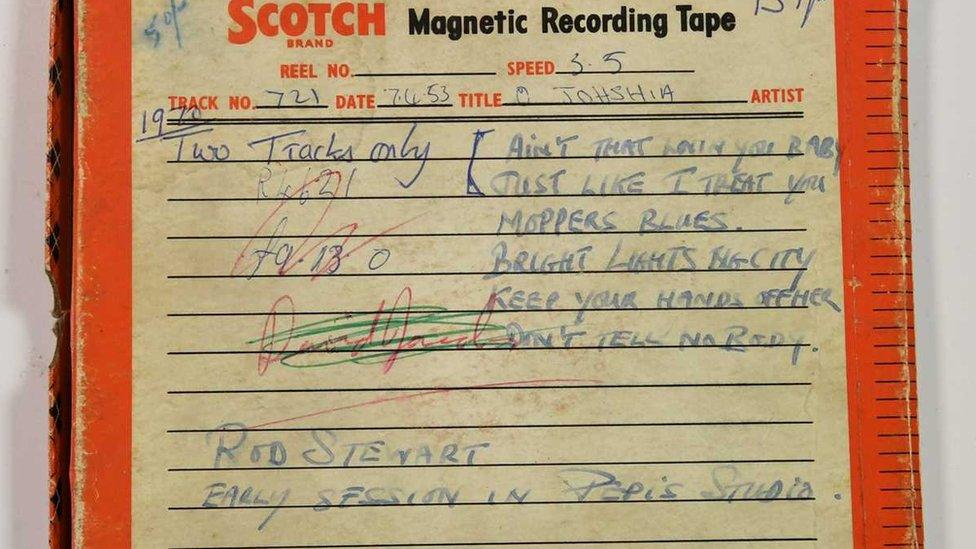 SCOTCH Magnetic Recording Tape
BRAND
REEL NO. SPEED 3.5
TRACK NO. 721 DATE 7.4.53 TITLE O JOHSHIA ARTIST
1970
Two Tracks only [ AIN'T THAT LOVIN YOU BABY
R4621 JUST LIKE I TREAT YOU
MOPPERS BLUES.
BRIGHT LIGHTS BIG CITY
KEEP YOUR HANDS OFF HER
DON'T TELL NOBODY.
ROD STEWART
EARLY SESSION IN PEPIS STUDIO.